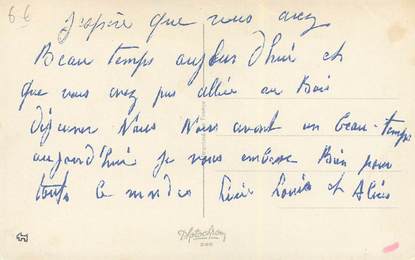 66
J'espère que vous avez
Beau temps aujourd'hui et
que vous avez pus allée au Bois
déjeuner Nous Nous avont un beau-temps
aujourd'hui je vous embrasse Bien pour
toute le monde Louis et Alice
Photochrom